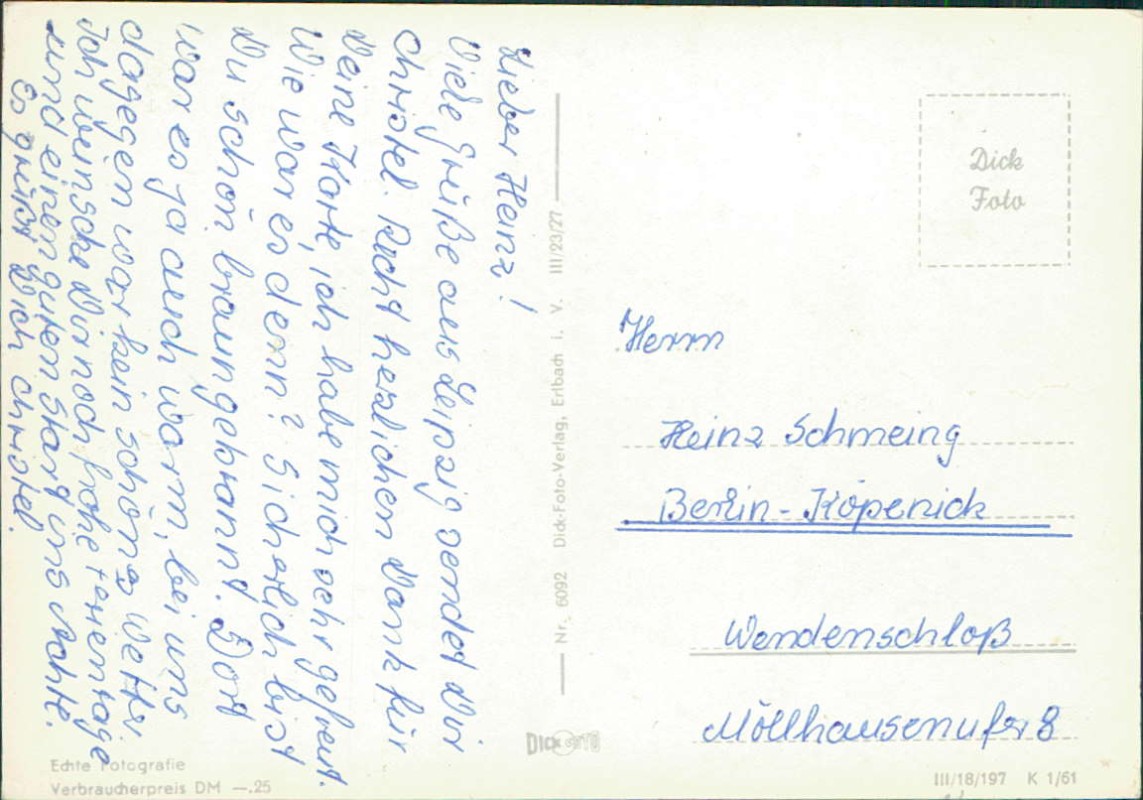 Lieber Heinz!
Viele Grüße aus Leipzig sendet Dir
Christel. Recht herzlichen Dank für
Deine Karte, ich habe mich sehr gefreut.
Wie war es denn? Sicherlich bist
Du schön braungebrannt. Dort
war es ja auch warm, bei uns
dagegen war kein schönes Wetter.
Ich wünsche Dir noch frohe Ferientage
und einen guten Start ins Achte.
Es grüßt Dich Christel.
Echte Fotografie
Verbraucherpreis DM —.25
Nr. 6092 Dick-Foto-Verlag, Erlbach i. V. III/23/27
DICK FOTO
Dick
Foto
Herrn
Heinz Schmeing
Berlin-Köpenick
Wendenschloß
Möllhausenufer 8
III/18/197 K 1/61